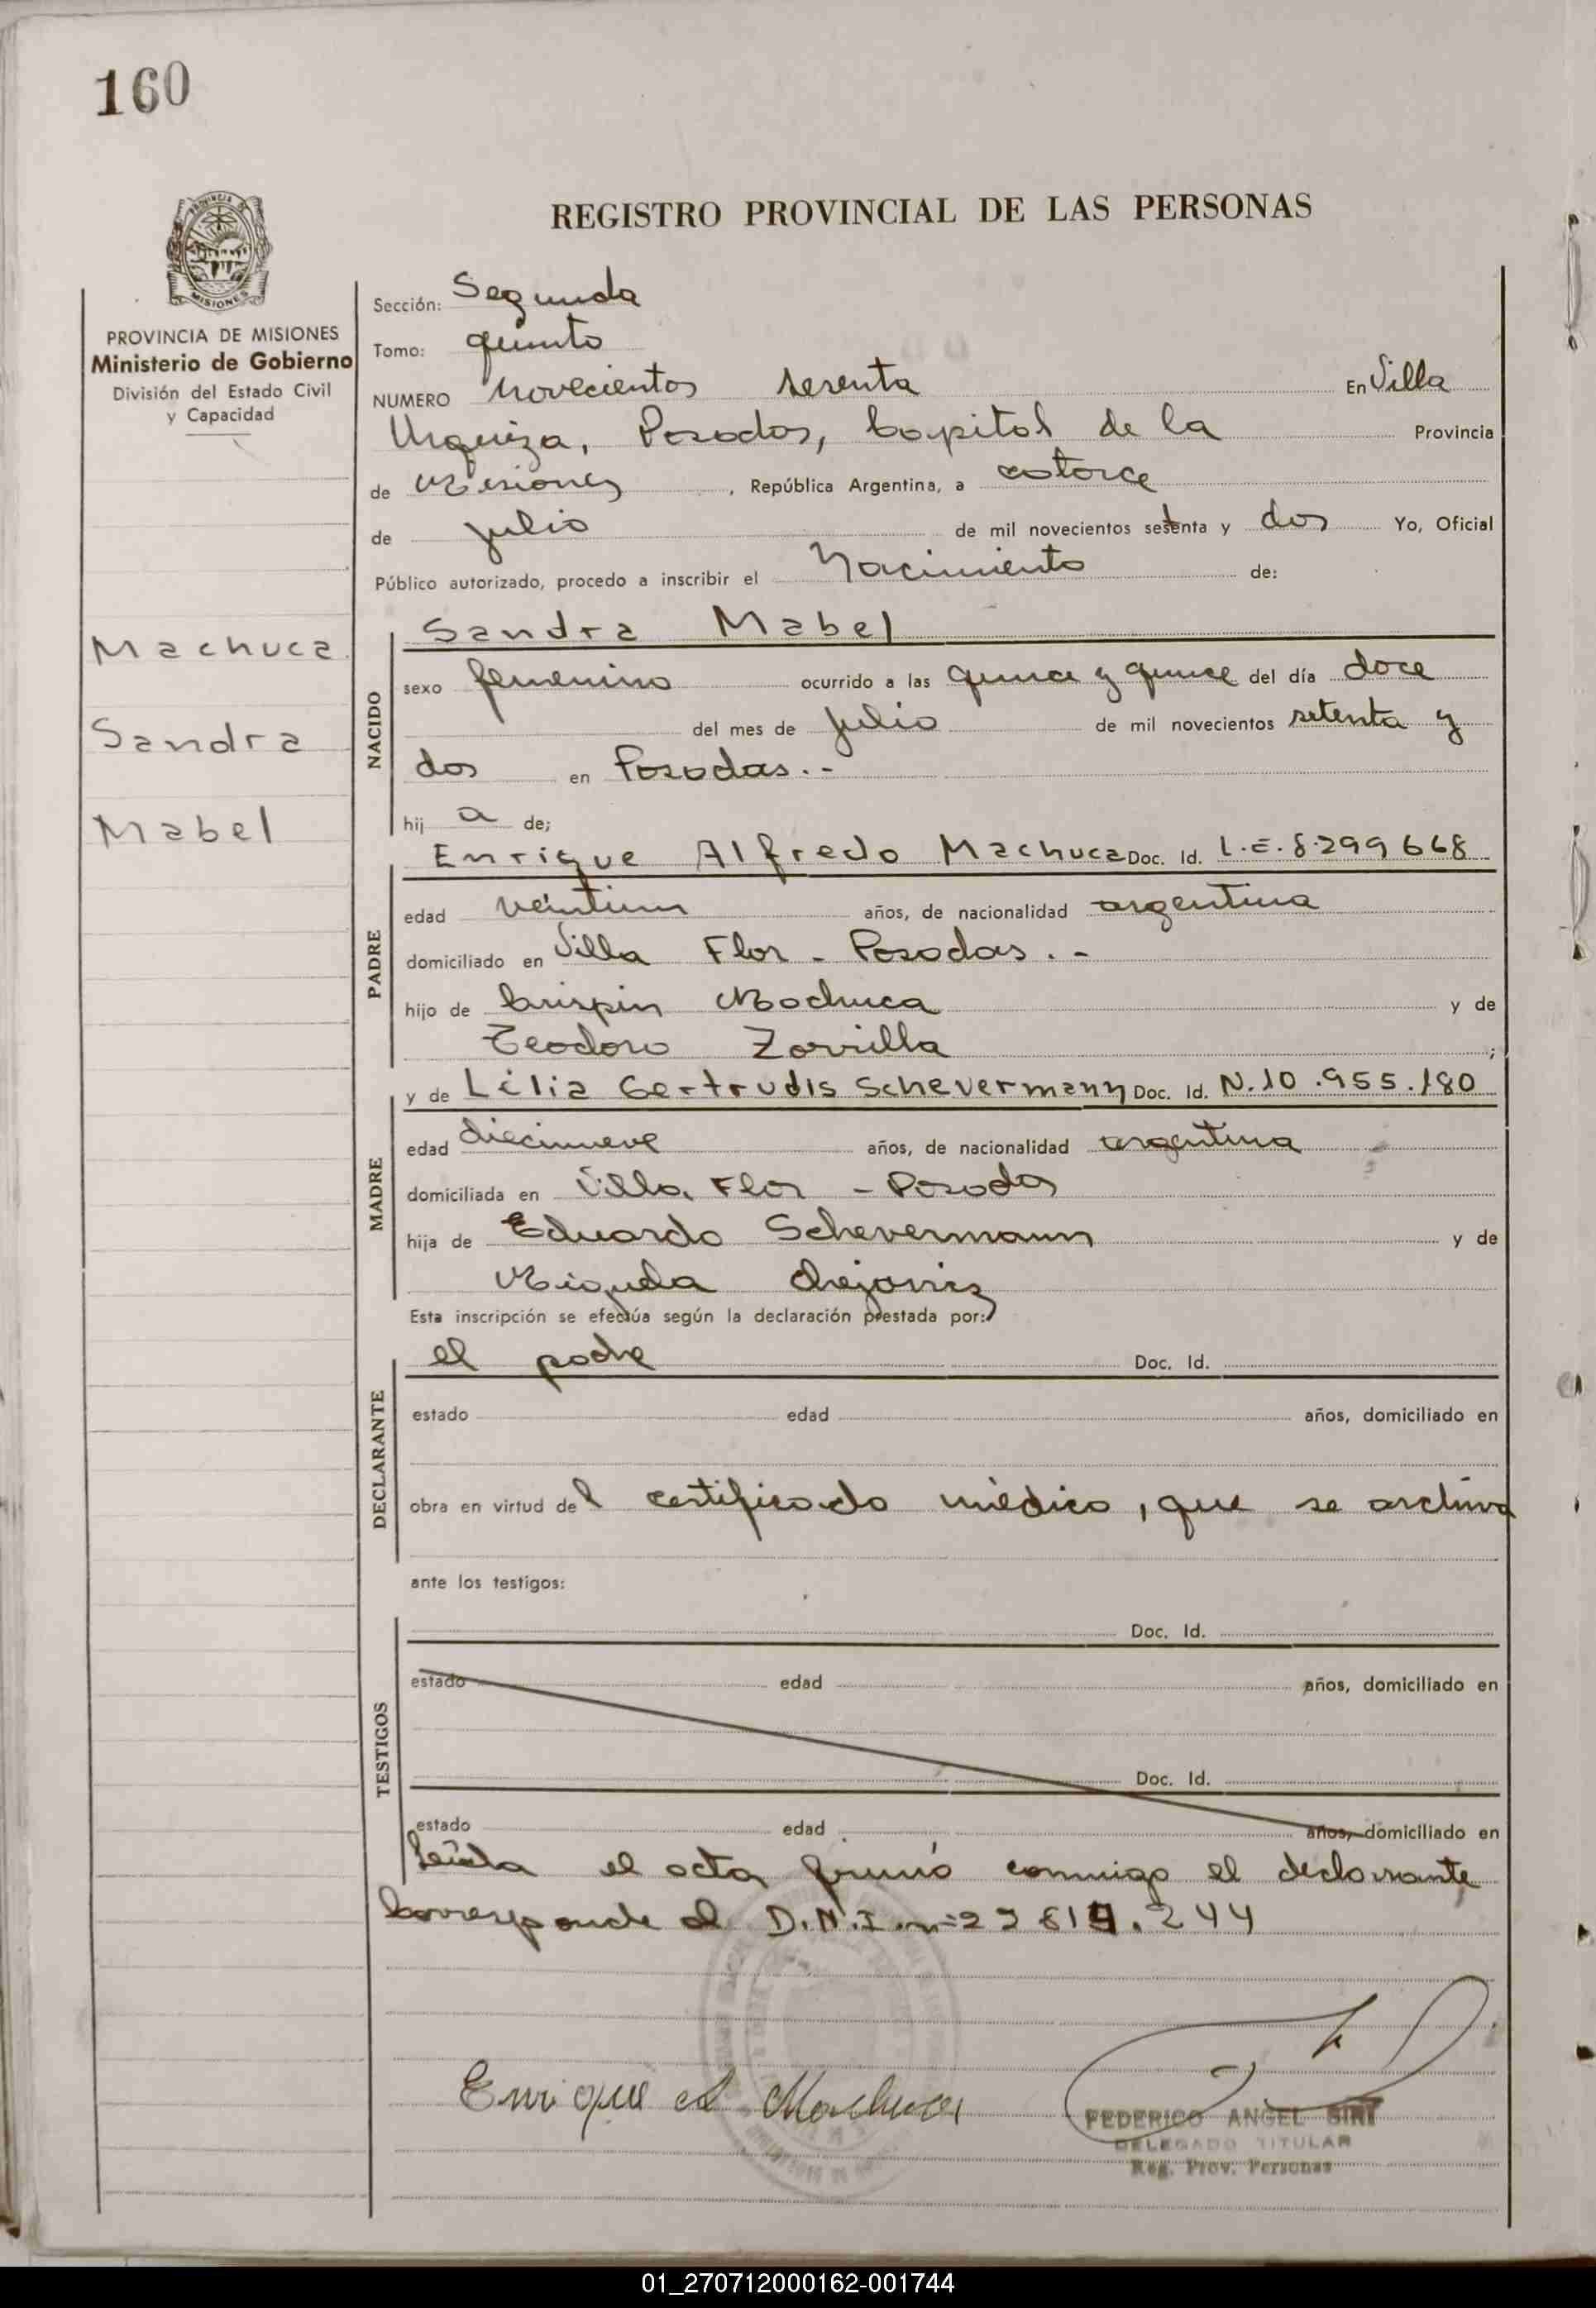 160
REGISTRO PROVINCIAL DE LAS PERSONAS
MISIONES
PROVINCIA DE MISIONES
Ministerio de Gobierno
División del Estado Civil
y Capacidad
Machuca
Sandra
Mabel
Sección: Segunda
Tomo: quinto
NUMERO Novecientos sesenta En Villa
Urquiza, Posadas, Capital de la Provincia
de Misiones, República Argentina, a catorce
de julio de mil novecientos setenta y dos Yo, Oficial
Público autorizado, procedo a inscribir el Nacimiento de:
NACIDO
Sandra Mabel
sexo femenino ocurrido a las quince y quince del día doce
del mes de julio de mil novecientos setenta y
dos en Posadas.-
hij a de;
PADRE
Enrique Alfredo Machuca Doc. Id. L.E. 8.299668
edad veintiun años, de nacionalidad argentina
domiciliado en Villa Flor - Posadas.-
hijo de Crispin Machuca y de
Teodoro Zorrilla;
y de Lilia Gertrudis Schevermann Doc. Id. N.10.955.180
MADRE
edad diecinueve años, de nacionalidad argentina
domiciliada en Villa Flor - Posadas
hija de Eduardo Schevermann y de
Miguela
Esta inscripción se efectúa según la declaración prestada por:
DECLARANTE
el padre Doc. Id.
estado edad años, domiciliado en
obra en virtud del certificado médico, que se archiva
ante los testigos:
TESTIGOS
Doc. Id.
estado edad años, domiciliado en
Doc. Id.
estado edad años, domiciliado en
Leída el acta firmó conmigo el declarante
Corresponde al D.N.I. nº 22 619.244
Enrique A Machuca
FEDERICO ANGEL SIRI
DELEGADO TITULAR
Reg. Prov. Personas
01_270712000162-001744